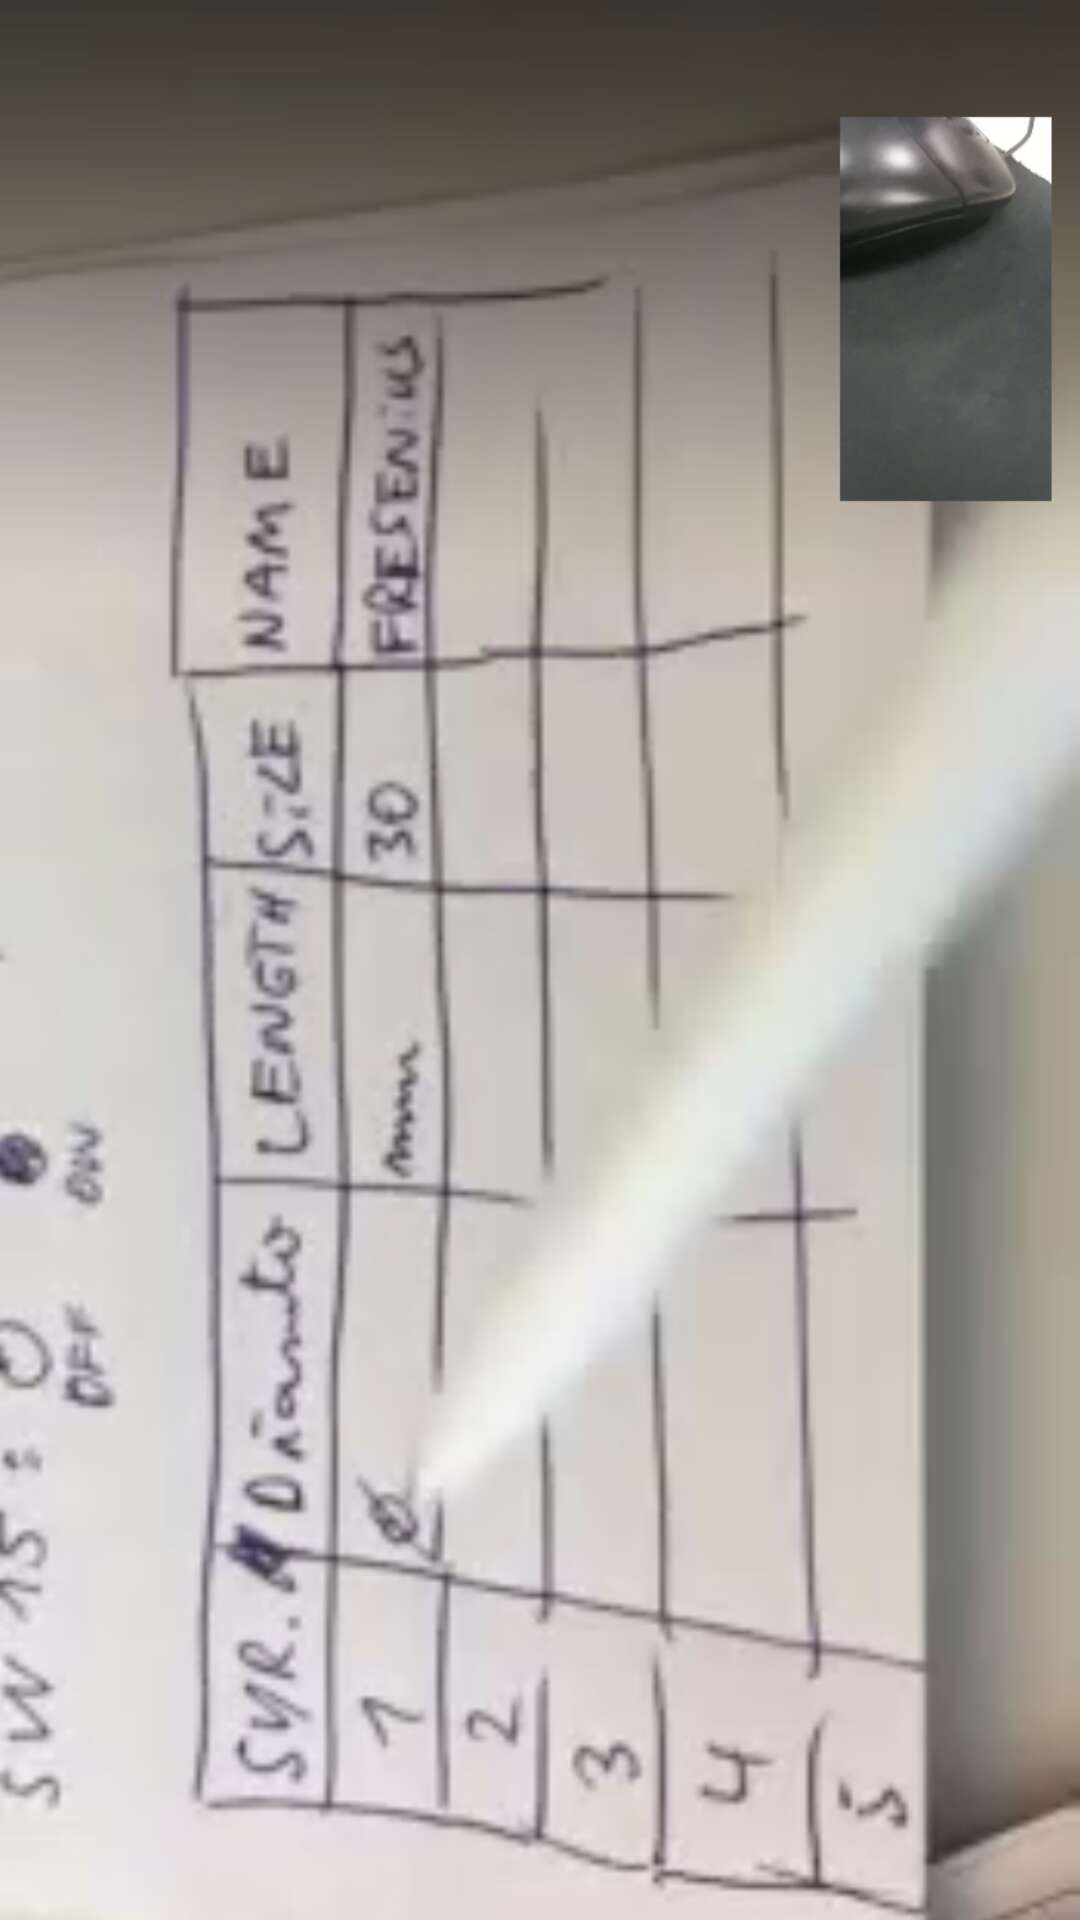 SW 15 :
OFF ON
SYR. Diameter LENGTH SiZE NAME
1 Ø mm 30 FRESENiUS
2
3
4
5